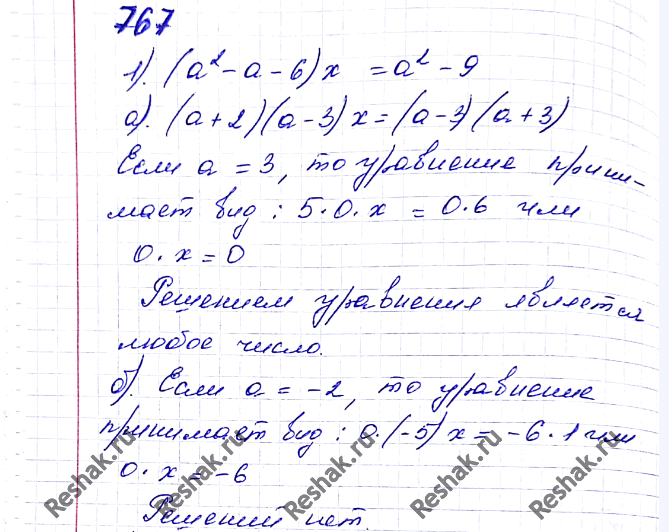 767
1). (a² - a - 6) x = a² - 9
а). (a + 2) (a - 3) x = (a - 3) (a + 3)
Если a = 3, то уравнение прини-
мает вид : 5 · 0 · x = 0 · 6 или
0 · x = 0
Решением уравнения является
любое число.
б). Если a = -2, то уравнение
принимает вид : 0 · (-5) x = -6 · 1 или
0 · x = -6
Решений нет.
Reshak.ru Reshak.ru Reshak.ru Reshak.ru Reshak.ru